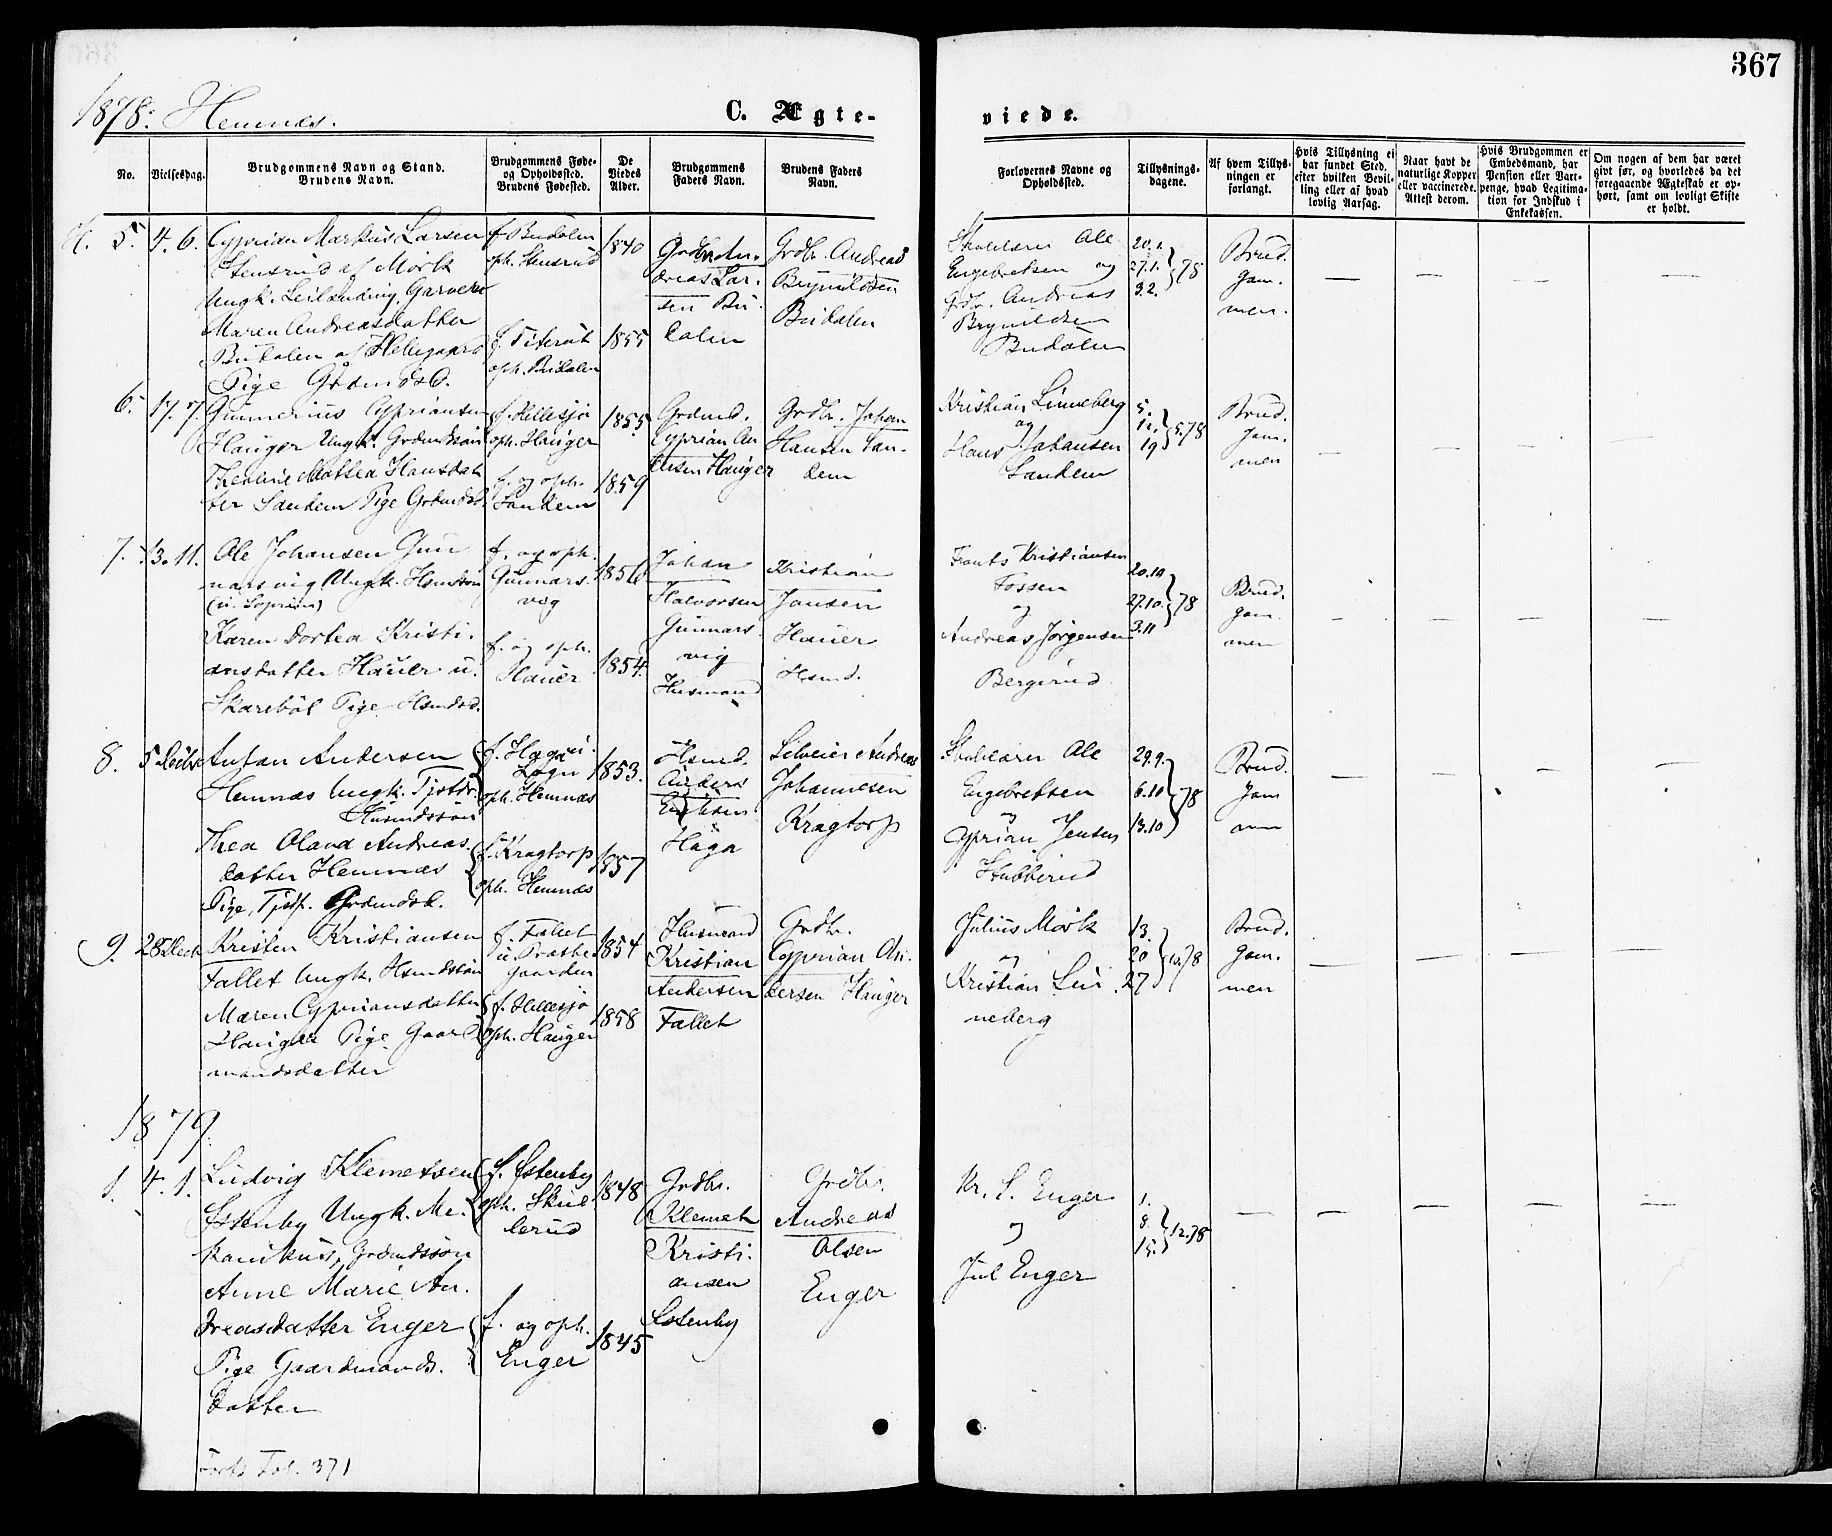 367
1878. Hemnæs.
C. Ægte-
viede.
No.
Vielsesdag.
Brudgommens Navn og Stand.
Brudens Navn.
Brudgommens Føde-
og Opholdssted.
Brudens Fødested.
De
Viedes
Alder.
Brudgommens
Faders Navn.
Brudens Faders
Navn.
Forlovernes Navne og
Opholdssted.
Tillysnings-
dagene.
Af hvem Tillys-
ningen er
forlangt.
Hvis Tillysning ei
har fundet Sted,
efter hvilken Bevil-
ling eller af hvad
lovlig Aarsag.
Naar havt de
naturlige Kopper
eller vaccinerede.
Attest derom.
Hvis Brudgommen er
Embedsmand, har
Pension eller Vart-
penge, hvad Legitima-
tion for Indskud i
Enkekassen.
Om nogen af dem har været
givt før, og hvorledes da det
foregaaende Ægteskab er op-
hørt, samt om lovligt Skifte
er holdt.
H. 5. 4. 6.
Cyprian Markus Larsen
Stensrud af Mørk
Ungk. Leilending, Garver
Maren Andreasdatter
Budalen af Hellegaard
Pige Grdmdsd.
f. Budalen
oph. Stensrud
f.
oph. Budalen
1840
1855
Grdbr. An-
dreas Lar-
sen Bu-
dalen
Grdbr. Andreas
Brynildsen
Budalen
Skolelærer Ole
Engebretsen og
Grdbr. Andreas
Brynildsen
Budalen
20.1.
27.1.
3.2. } 78
Brud-
gom-
men.
6. 17. 7.
Gunnerius Cypriansen
Hauger Ungk. Grdmdssøn
Theoline Mathea Hansdat-
ter Sandem Pige Grdmdsd.
f. Hellesjø
oph. Hauger
f. og oph.
Sandem
1855
1859
Grdmd.
Cyprian An-
dersen Hauger
Grdbr. Johan
Hansen San-
dem
Kristian Linneberg
og
Hans Johansen
Sandem
5.
12.
19 } 5.78
Brud-
gom-
men
7. 13. 11.
Ole Johansen Gun-
narsvig Ungk. Hsmdssøn
Karen Dortea Kristi-
ansdatter Hauer u.
Skarebøl Pige Hsmdsd.
f. og oph.
Gunnars-
vig
f. og oph.
Hauer
1856
1854.
Johan
Halvorsen
Gunnars-
vig
Husmand
Kristian
Jansen
Hauer
Hsmd.
Frants Kristiansen
Fossen
og
Andreas Jørgensen
Bergerud
20.10
27.10.
3.11 } 78
Brud-
gom-
men
8. 5 Decbr.
Anton Andersen
Hemnæs Ungk. Tjstdr.
Husmdssøn
Thea Olava Andreas-
datter Hemnæs
Pige, Tjstp. Grdmdsd.
f. Haga u.
oph. Hemnæs
f. Kragtorp
oph. Hemnæs
1853.
1857
Hsmd.
Anders
Eriksen
Haga
Andreas
Johannesen
Kragtorp
Skolelærer Ole
Engebretsen
og
Cyprian Jensen
Stubberud
29.9.
6.10
13.10 } 78
Brud-
gom-
men
9. 28 Decbr.
Kristen Kristiansen
Fallet Ungk. Hsmdssøn
Maren Cypriansdatter
Hauger Pige Gaard-
mandsdatter
f. Fallet
u. Præste-
gaarden
f. Hellesjø
oph. Hauger
1854
1858
Husmand
Kristian
Andersen
Fallet
Grdbr.
Cyprian An-
dersen Hauger
Julius Mørk
og
Kristian Lin-
neberg
13.
20
27 } 10.78
Brud-
gom-
men
1879.
1. 4. 1.
Ludvig Klemetsen
Østenby Ungk. Me-
kanikus, Grdmdssøn
Anne Marie An-
dreasdatter Enger
Pige Gaardmands-
datter
f. Østenby
oph. Skul-
lerud
f. og oph.
Enger
1848
1845
Grdbr.
Klemet
Kristi-
ansen
Østenby
Grdbr.
Andreas
Olsen
Enger
Kr. S. Enger
og
Jul Enger
1.
8.
15. } 12.78
Forts. Fol. 371